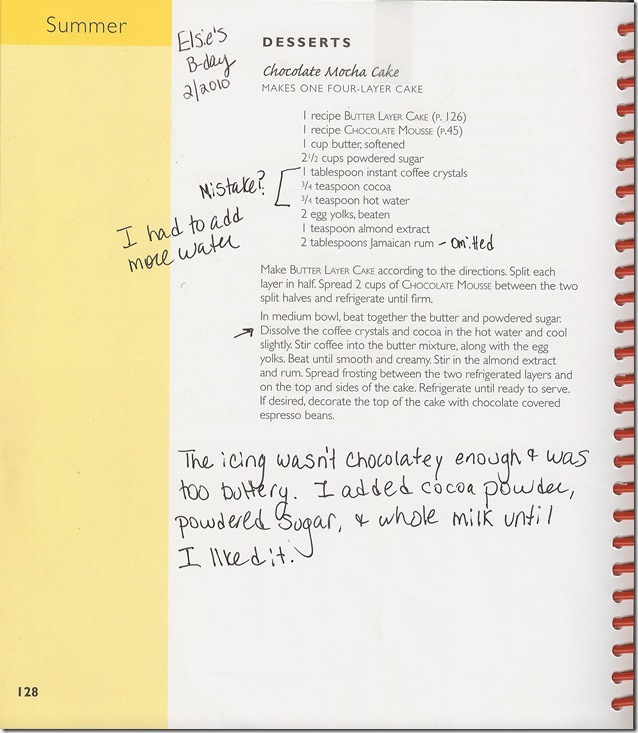 Summer
Elsie's
B-day
2/2010
DESSERTS
Chocolate Mocha Cake
MAKES ONE FOUR-LAYER CAKE
1 recipe BUTTER LAYER CAKE (P. 126)
1 recipe CHOCOLATE MOUSSE (P.45)
1 cup butter, softened
2 1/2 cups powdered sugar
1 tablespoon instant coffee crystals
3/4 teaspoon cocoa
3/4 teaspoon hot water
Mistake?
I had to add
more water
2 egg yolks, beaten
1 teaspoon almond extract
2 tablespoons Jamaican rum - omitted
Make BUTTER LAYER CAKE according to the directions. Split each
layer in half. Spread 2 cups of CHOCOLATE MOUSSE between the two
split halves and refrigerate until firm.
In medium bowl, beat together the butter and powdered sugar.
Dissolve the coffee crystals and cocoa in the hot water and cool
slightly. Stir coffee into the butter mixture, along with the egg
yolks. Beat until smooth and creamy. Stir in the almond extract
and rum. Spread frosting between the two refrigerated layers and
on the top and sides of the cake. Refrigerate until ready to serve.
If desired, decorate the top of the cake with chocolate covered
espresso beans.
The icing wasn't chocolatey enough & was
too buttery. I added cocoa powder,
powdered sugar, & whole milk until
I liked it.
128